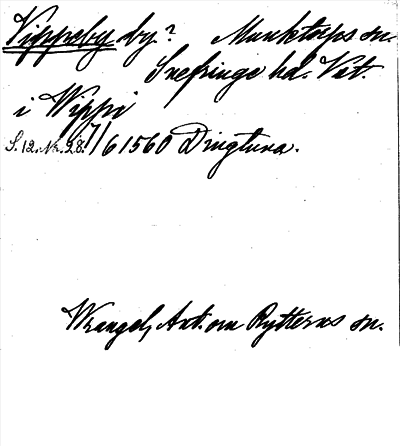 Vippeby by? Munktorps sn.
Snefringe hd. Vst.
i Wippi
S. 12. Nr. 28. 7/6 1560 Dingtuna.
Wrangel, Ant. om Rytterns sn.